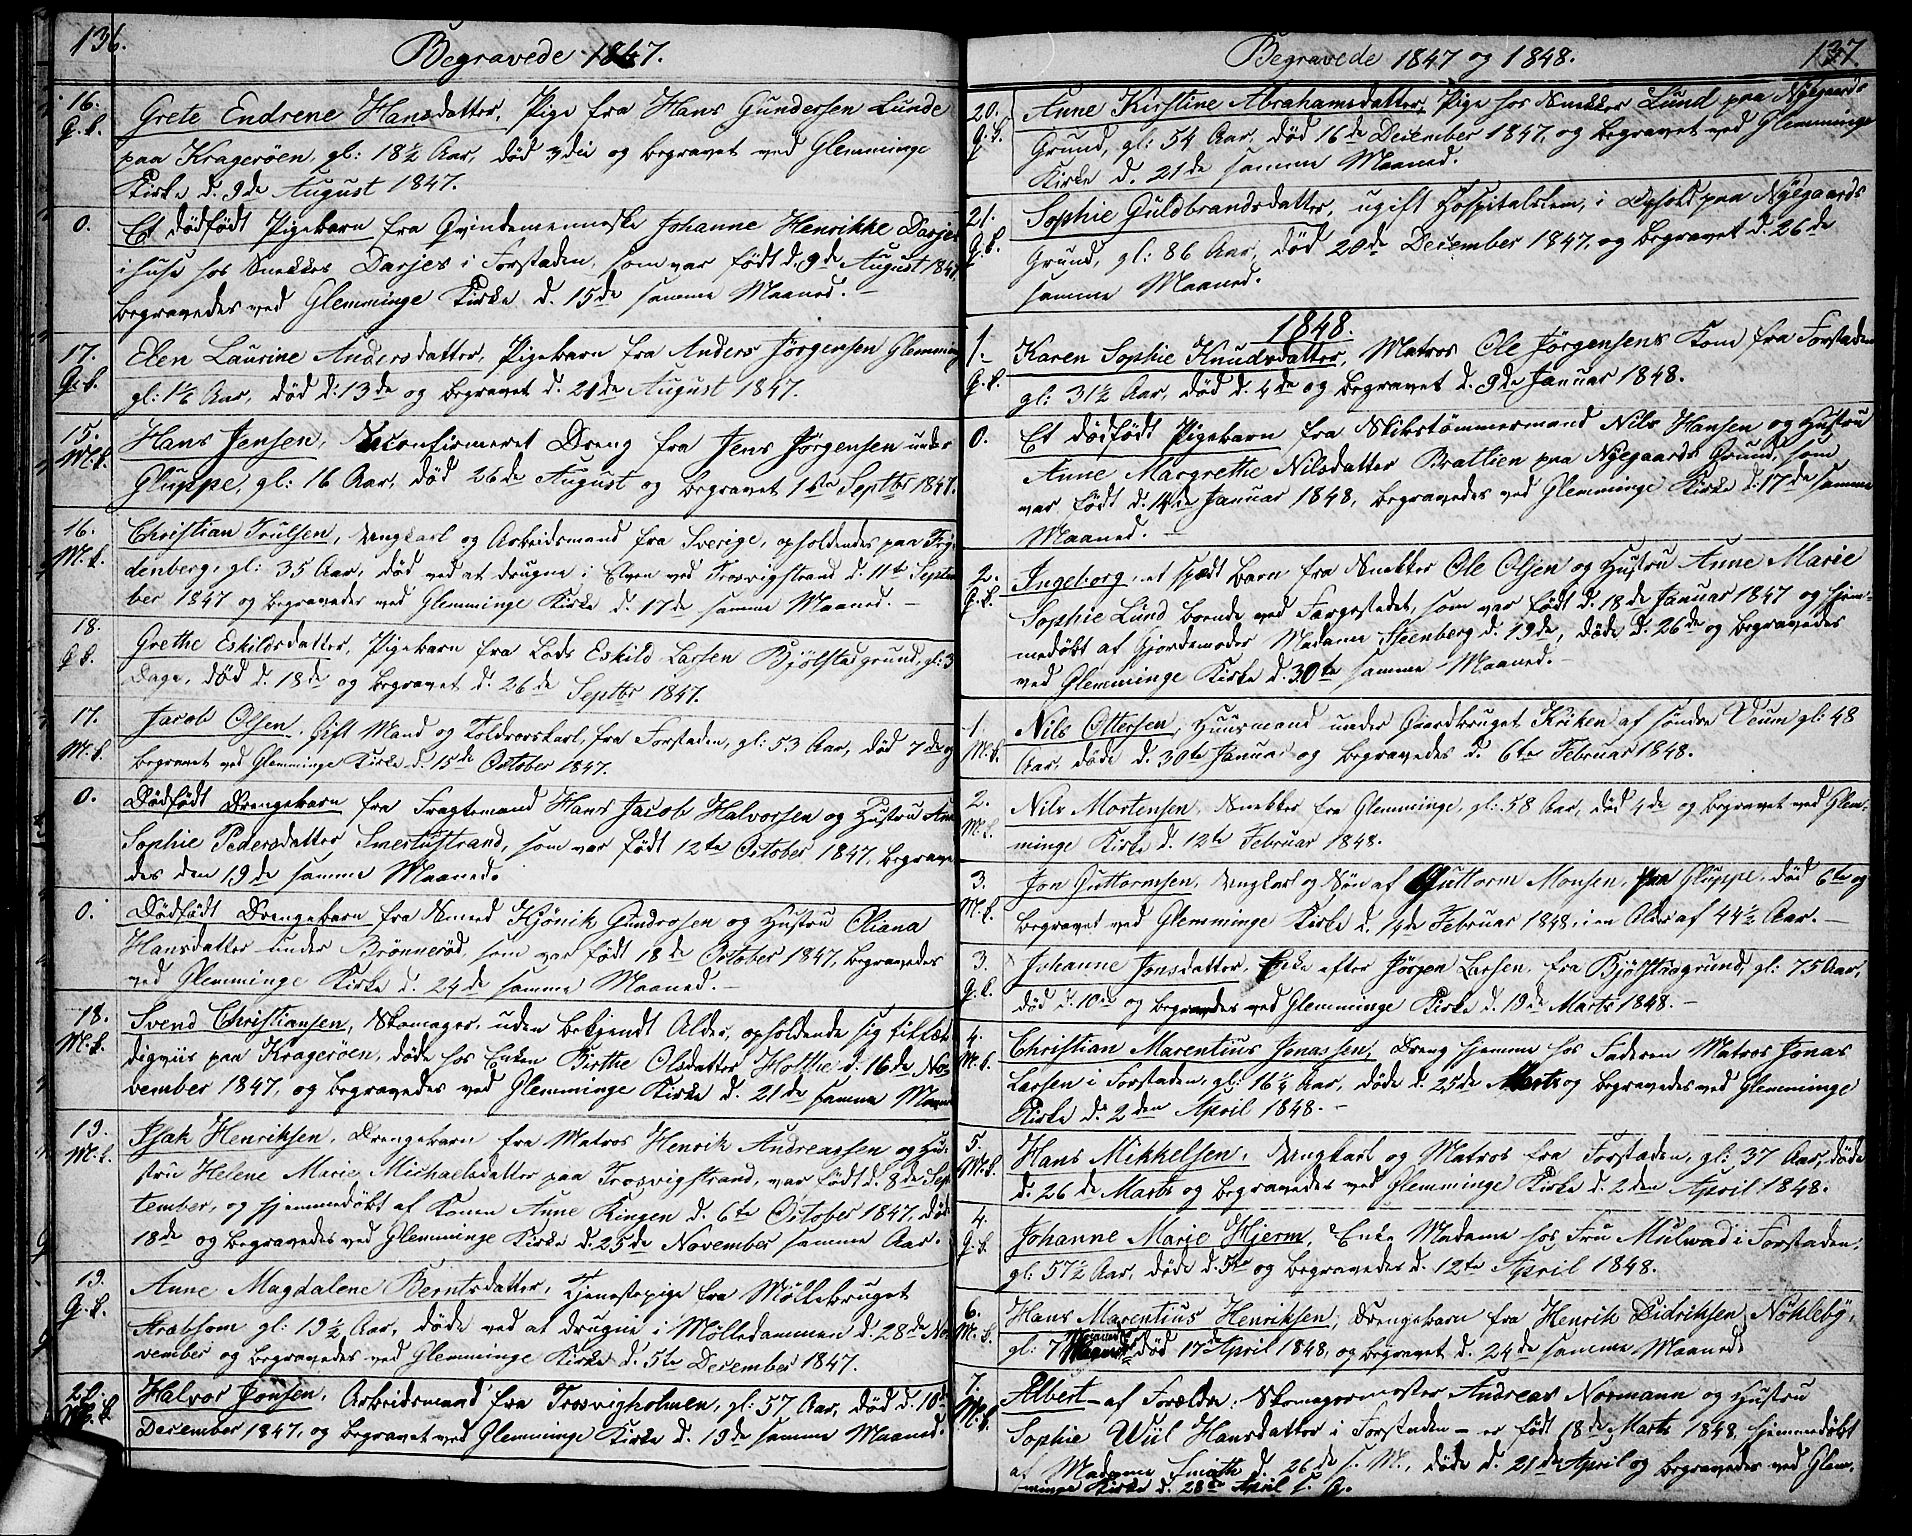 136.
Begravede 1847.
16.
Q.k.
Grete Endrene Hansdatter, Pige fra Hans Gundersen Lunde
paa Kragerøen, gl: 18½ Aar, død 3die og begravet ved Glemminge
Kirke d. 9de August 1847.
0.
Et dødfødt Pigebarn fra Qvindemenneske Johanne Henrikke Darjes
i huse hos Snekker Darjes i Forstaden, som var født d. 9de August 1847
begravedes ved Glemminge Kirke d. 15de samme Maaned.
17.
Q.k.
Elen Laurine Andersdatter, Pigebarn fra Anders Jørgensen Glemminge
gl: Aar, død d. 13de og begravet d. 21de August 1847.
15.
M.k.
Hans Jensen, Uconfirmeret Dreng fra Jens Jørgensen under
Gluppe, gl: 16 Aar, død 26de August og begravet 1ste Septbr 1847.
16.
M.k.
Christian Trulsen, Ungkarl og Arbeidsmand fra Sverige, opholdendes paa
denberg, gl: 35 Aar, død ved at drugne i Elven ved Trosvigstrand d. 11te Septem
ber 1847 og begravedes ved Glemminge Kirke d. 17de samme Maaned.
18.
Q.k.
Grethe Eskildsdatter, Pigebarn fra Lods Eskild Larsen Bjølstadgrund, gl: 3
Dage, død d. 18de og begravet d. 26de Septbr 1847.
17.
M.k.
Jacob Olsen, Gift Mand og Toldroerskarl, fra Forstaden, gl: 53 Aar, død 7de og
begravet ved Glemminge Kirke d. 15de October 1847.
0.
Dødfødt Drengebarn fra Fragtemand Hans Jacob Halvorsen og Hustru Anne
Sophie Pedersdatter Smertustrand, som var født 12te October 1847, begrave
des den 19de samme Maaned.
0.
Dødfødt Drengebarn fra Smed Hjønik Gundrosen og Hustru Oliana
Hansdatter under Brønnerød, som var født 18de October 1847, begravedes
ved Glemminge Kirke d. 24de samme Maaned.
18.
M.k.
Svend Christiansen, Skomager, uden bekjendt Alder, opholdende sig
digviis paa Kragerøen, døde hos Enken Birthe Olsdatter Holthe d. 16de No
vember 1847, og begravedes ved Glemminge Kirke d. 21de samme Maaned
19.
M.k.
Isak Henriksen, Drengebarn fra Matros Henrik Andreassen og Hu-
stru Helene Marie Michaelsdatter paa Trosvigstrand, var født d. 8de Sep
tember, og hjemmedøbt af Konen Anne Ringen d. 6te October 1847, døde
18de og begravedes ved Glemminge Kirke d. 25de November samme Aar.
19.
Q.k.
Anne Magdalene Berntsdatter, Tjenestepige fra Møllebruget
gl: 19½ Aar, døde ved at drugne i Mølledammen d. 28de No
vember og begravedes ved Glemminge Kirke d. 5te December 1847.
20.
M.k.
Halvor Jonsen, Arbeidsmand fra Trosvigholmen, gl: 57 Aar, død d. 10de
December 1847, og begravet ved Glemminge Kirke d. 19de samme Maaned.
Begravede 1847 og 1848.
137
20.
Q.k.
Anne Kirstine Abrahamsdatter, Pige hos Snekker Lund paa Nyegaards
Grund, gl: 54 Aar, død 16de December 1847, og begravet ved Glemminge
Kirke d. 21de samme Maaned.
21.
Q.k.
Sophie Guldbrandsdatter, ugift Hospitalslem, i Ophold paa Nyegaards
Grund, gl: 86 Aar, død 20de December 1847, og begravet d. 26de
samme Maaned.
1848.
1.
Q.k.
Karen Sophie Knudsdatter, Matros Ole Jørgensens Kone fra Forstaden
gl: 31½ Aar, død d. 4de og begravet d. 9de Januar 1848.
0.
Et dødfødt Pigebarn fra Skibstømmermand Nils Hansen og Hustru
Anne Margrethe Nilsdatter Bratlien paa Nyegaards Grund, som
var født d. 14de Januar 1848, begravedes ved Glemminge Kirke d: 17de samme
Maaned.
2.
Q.k.
Ingeborg, et spædt Barn fra Snekker Ole Olsen og Hustru Anne Marie
Sophie Lund boende ved Færgestedet, som var født d. 18de Januar 1847 og hjem-
medøbt af Gjordemoder Madame Steenberg d. 19de, døde d. 26de og begravedes
ved Glemminge Kirke d. 30te samme Maaned.
1.
M.k.
Nils Ottersen, Huusmand under Gaardbruget Kriken af søndre Veum gl: 48
Aar, døde d. 30te Januar og begravedes d. 6te Februar 1848.
2.
M.k.
Nils Mortensen, Snekker fra Glemminge, gl: 58 Aar, død 4de og begravet ved Glem-
minge Kirke d. 12te Februar 1848.
3.
M.k.
Jon Guttormsen, Ungkarl og Søn af Guttorm Monsen, fra Gluppe, død 6te og
begravet ved Glemminge Kirke d. 14de Februar 1848, i en Alder af 44½ Aar.
3.
Q.k.
Johanne Jonsdatter, Enke efter Jørgen Larsen, fra Bjølstadgrund, gl: 75 Aar,
død d. 10de og begravedes ved Glemminge Kirke d. 19de Marts 1848.
4.
M.k.
Christian Marentius Jonassen, Dreng hjemme hos Faderen Matros Jonas
Larsen i Forstaden, gl: 16½ Aar, døde d. 25de Marts og begravedes ved Glemminge
Kirke d. 2den April 1848.
5.
M.k.
Hans Mikkelsen, Ungkarl og Matros fra Forstaden, gl: 37 Aar, døde
d. 26de Marts og begravedes ved Glemminge Kirke d. 2den April 1848.
4.
Q.k.
Johanne Marie Hjerm, Enke Madame hos Fru Mulvad i Forstaden,
gl: 57½ Aar, døde d. 5te og begravedes d. 12te April 1848.
6.
M.k.
Hans Marentius Henriksen, Drengebarn fra Henrik Didriksen Nøkleby,
gl: 7 Maaneder død 17de April 1848, og begravet d. 24de samme Maaned.
7.
M.k.
Albert - af Forældre: Skomagermester Andreas Normann og Hustru
Sophie Wiil Hansdatter i Forstaden - er født 18de Marts 1848, hjemmedøbt
af Madame Smith d. 26de s. M., døde d. 21de April og begravedes ved Glem-
minge Kirke d. 28de April s. A.